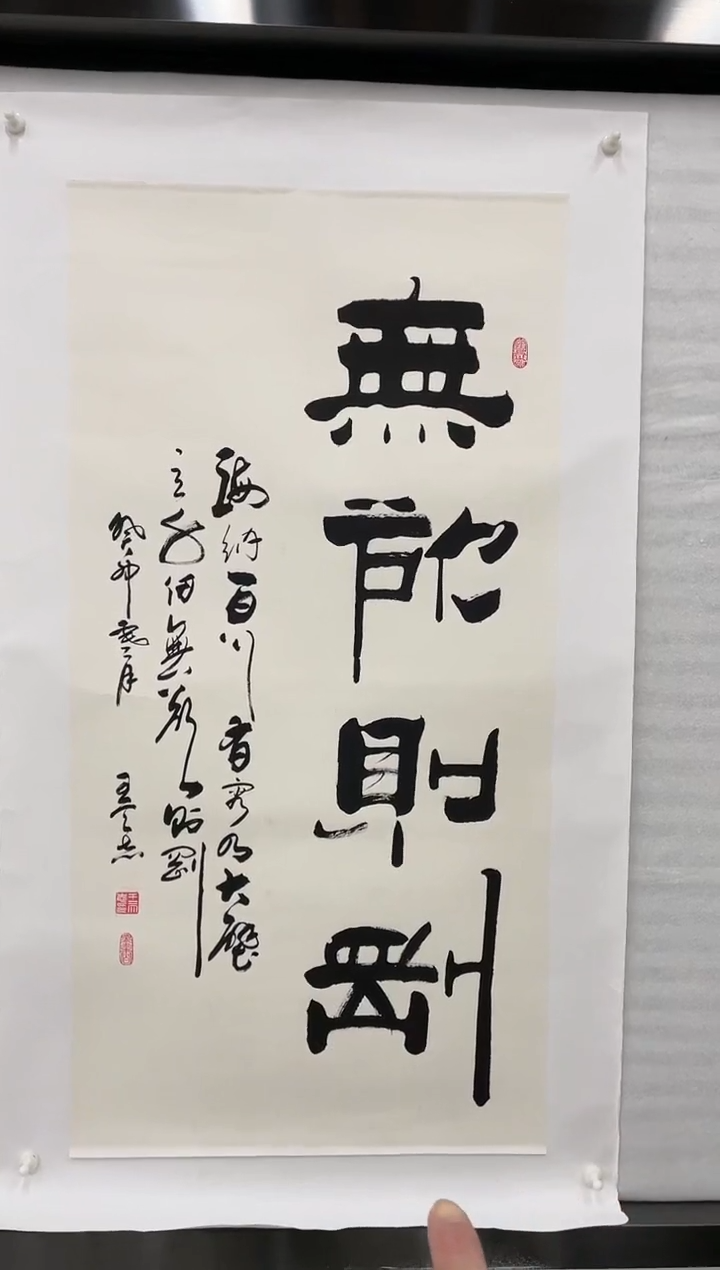 無欲則剛
海納百川有容乃大壁
立千仞無欲則剛
癸卯月
王志